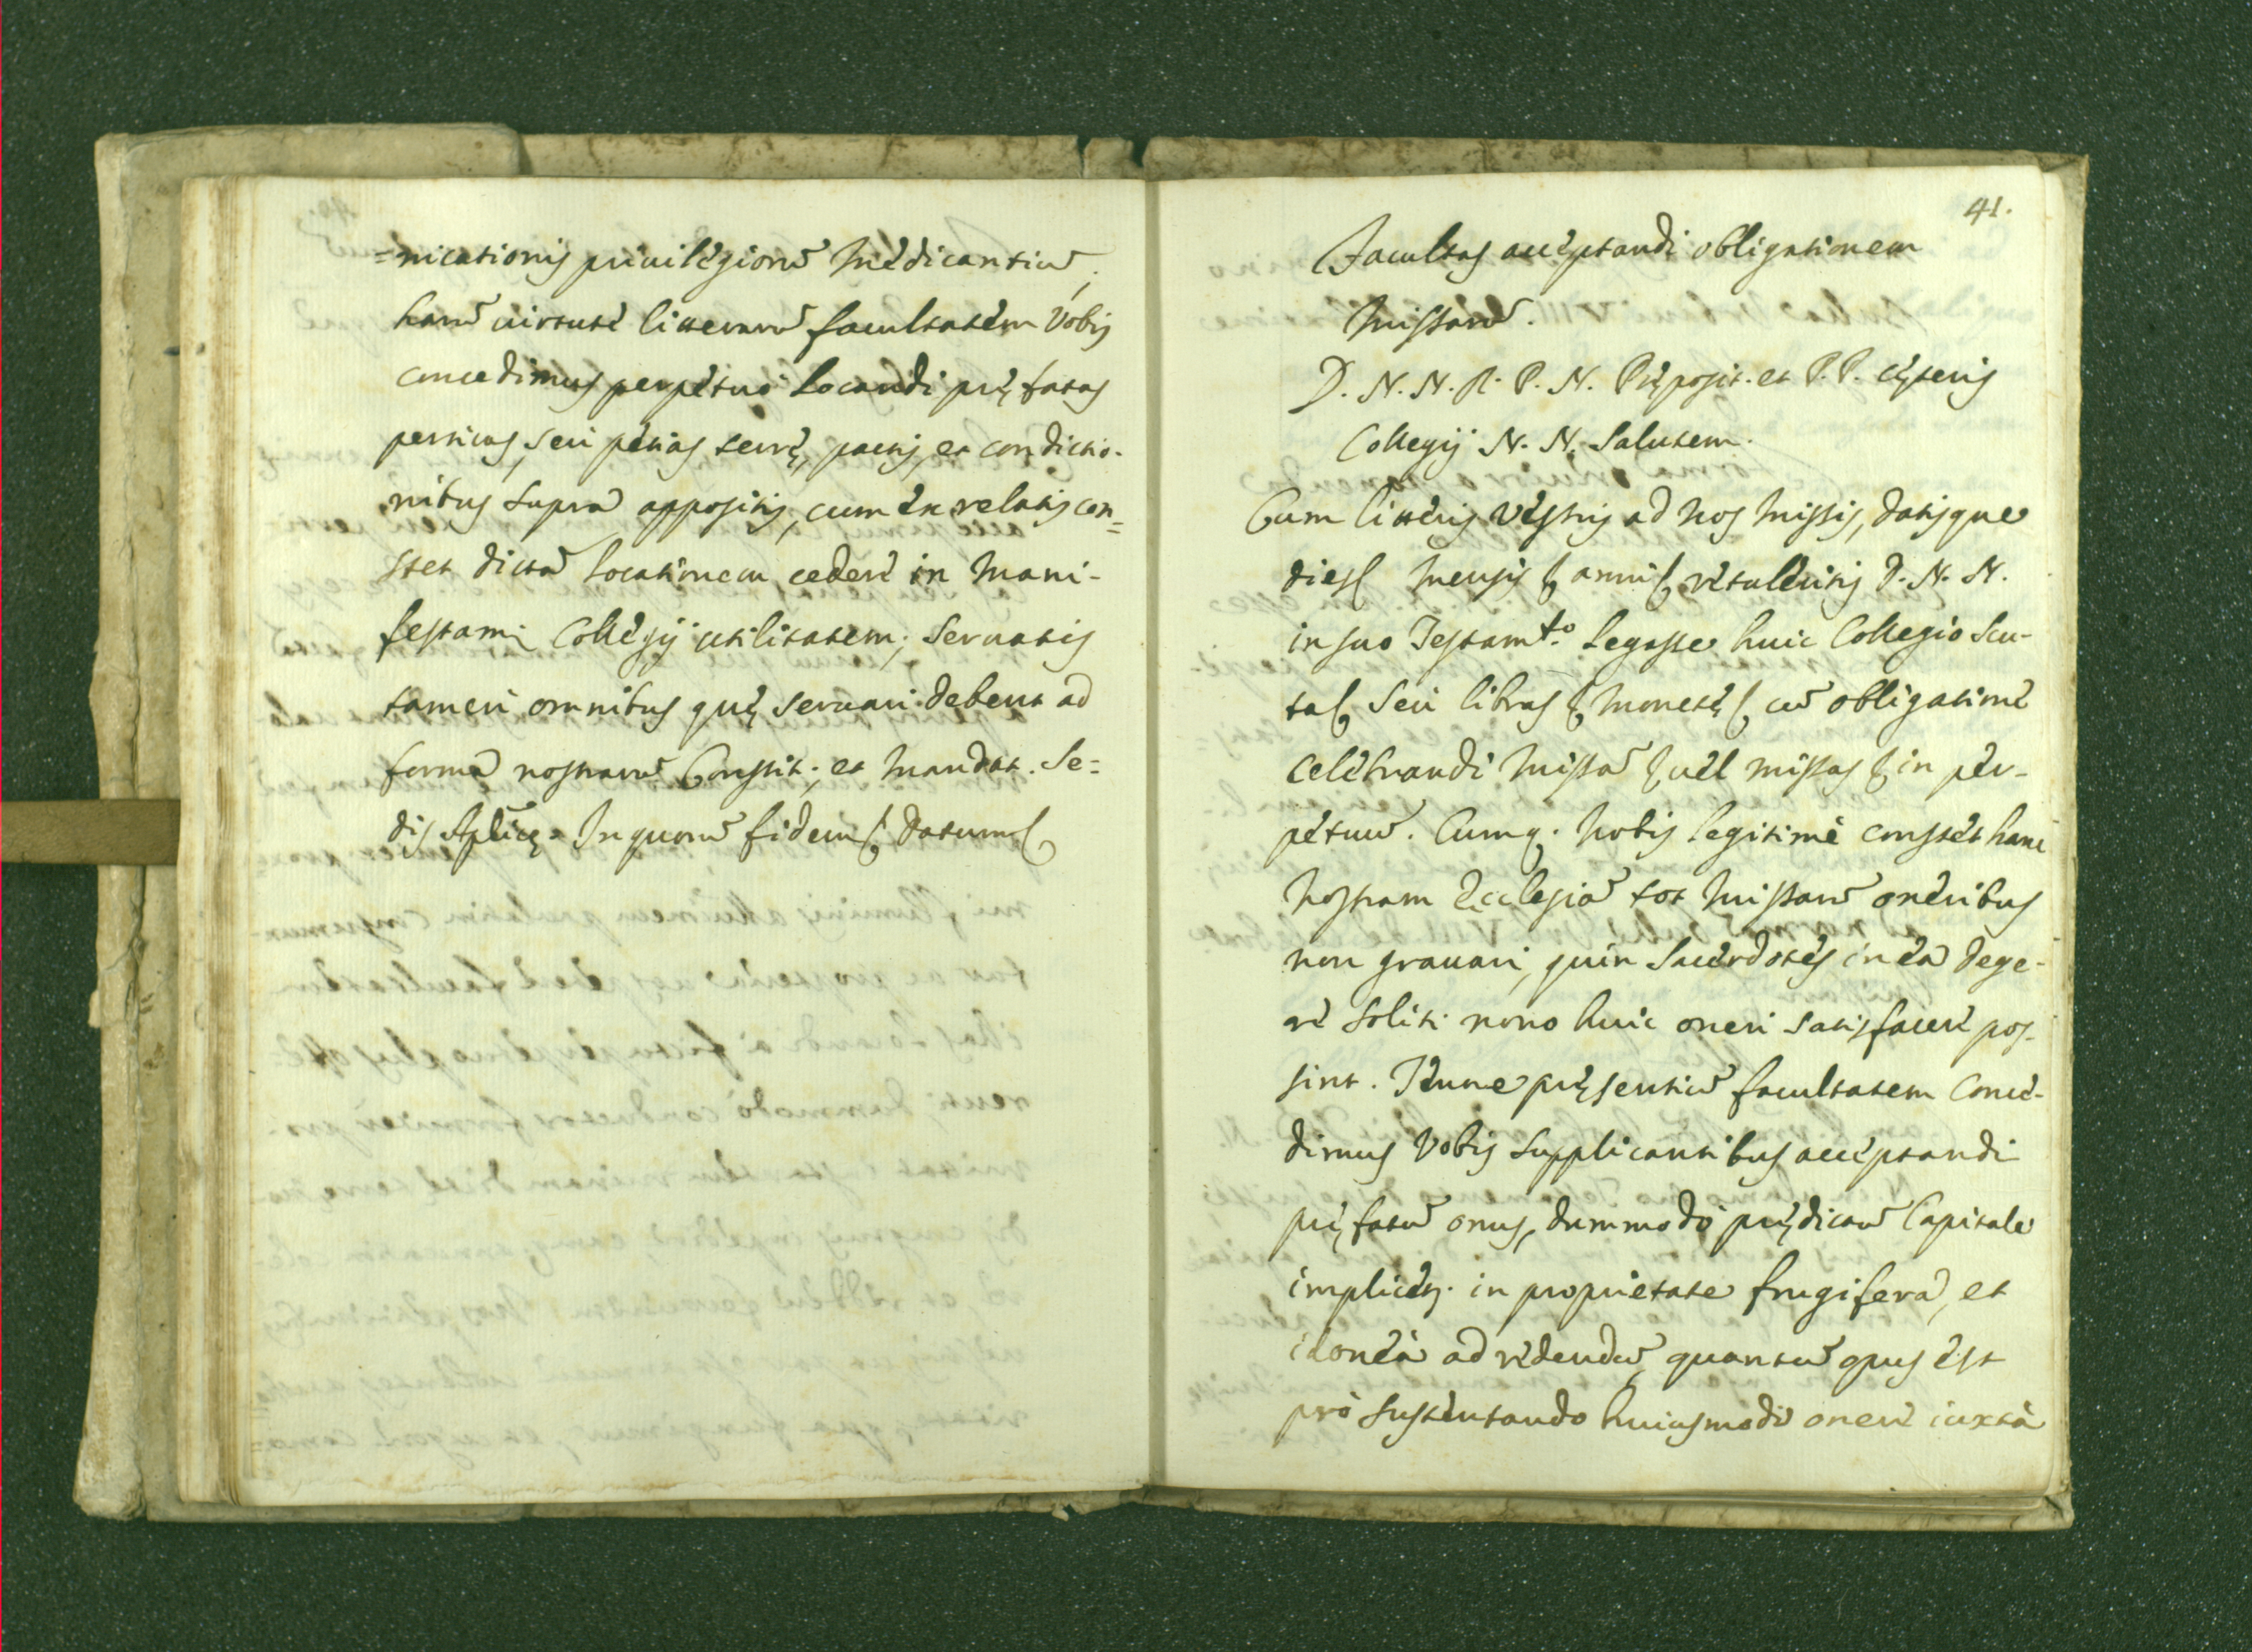 =nicationis priuilegiorū Mēdicantiū,
harū uirtute litterarū facultatem Vobis
concedimus perpetuò locandi pręfatas
perticas, seu petias terrę, pactis, et condictio-
nibus supra appositis, cum ex relatis con=
stet dictā locationem cedere in mani-
festam Collegij utilitatem; seruatis
tamen omnibus quę seruari debent ad
formā nostrarū Constit., et Mandat. Se=
dis Aplicę. In quorū fidem& Datum&
41.
Facultas acceptandi obligationem
Missarū.
D. N. N. R. P. N. Pręposit. et P. P. cęteris
Collegij N. N. Salutem.
Cum litteris vestris ad nos missis, datisque
die& mensis & anni& retuleritis D. N. N.
in suo Testamto. legasse huic Collegio scu-
ta& seu libras & monetę& cū obligatione
celebrandi Missā & uel missas & in per-
petuū. Cumq. nobis legitimè constet hanc
nostram Ecclesiā tot Missarū oneribus
non grauari, quin Sacerdotes in ea dege-
re soliti nouo huic oneri satisfacere pos-
sint. Tenore pręsentiū facultatem conce-
dimus Vobis supplicantibus acceptandi
pręfatū onus, dummodo prędictū Capitale
implicetr. in proprietate frugifera, et
idonea ad reddendū quantū opus est
pro sustentando huiusmodi onere iuxtà